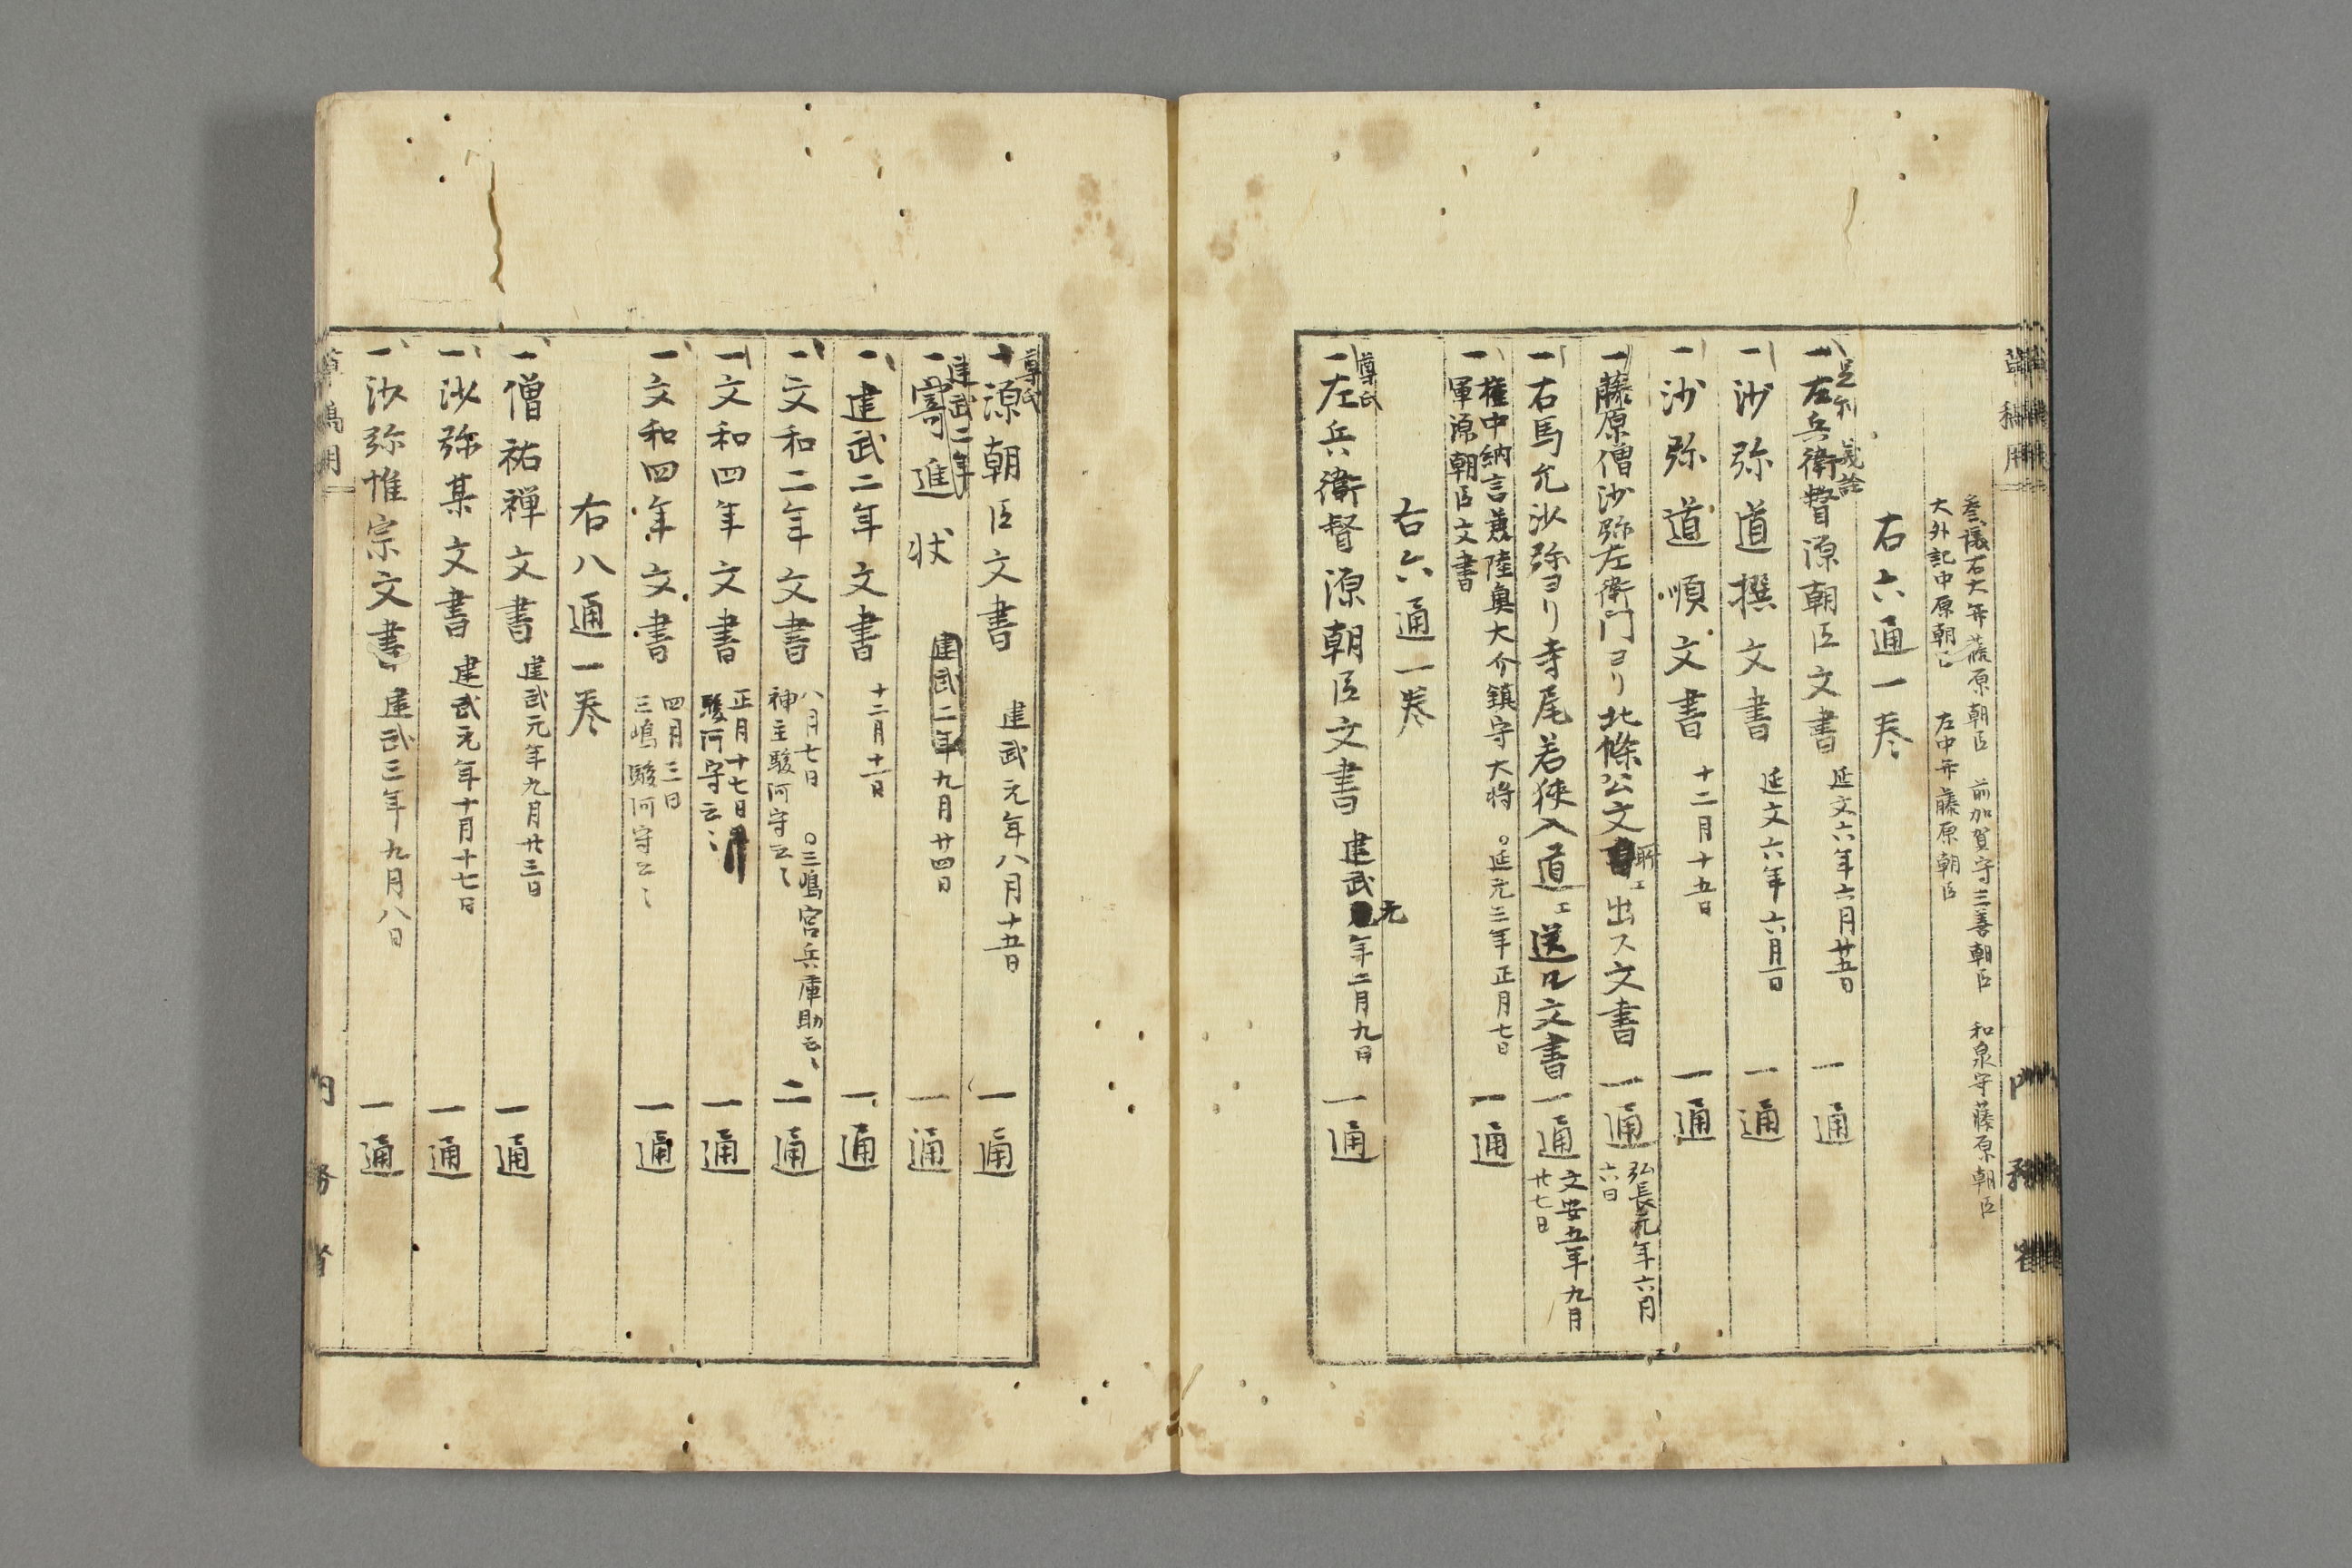 草稿用
参議右大弁藤原朝臣　前加賀守三善朝臣　和泉守藤原朝臣
大外記中原朝臣　左中弁藤原朝臣
右六通一巻
足利　義詮
一左兵衛督源朝臣文書　延文六年六月廿五日　一通
一沙弥道撰文書　延文六年六月一日　一通
一沙弥道順文書　十二月十五日　一通
一藤原僧沙弥左衛門ヨリ北條公文所エ出ス文書　一通　弘長元年六月
六日
一右馬允沙弥ヨリ寺尾若狭入道エ送ル文書　一通　文安五年九月
廿七日
一権中納言兼陸奥大介鎮守大将　〇延元三年正月七日　一通
軍源朝臣文書
右六通一巻
尊氏
一左兵衛督源朝臣文書　建武元年二月九日　一通
尊氏
一源朝臣文書　建武元年八月十五日　一通
建武二年
一寄進状　建武二年九月廿四日　一通
一建武二年文書　十二月十一日　一通
一文和二年文書　八月七日　〇三嶋宮兵庫助云々　二通
神主駿河守云々
一文和四年文書　正月十七日　一通
駿河守云々
一文和四年文書　四月三日　一通
三嶋駿河守云々
右八通一巻
一僧祐禅文書　建武元年九月廿三日　一通
一沙弥某文書　建武元年十月十七日　一通
一沙弥惟宗文書　建武三年九月八日　一通
草稿用
内務省